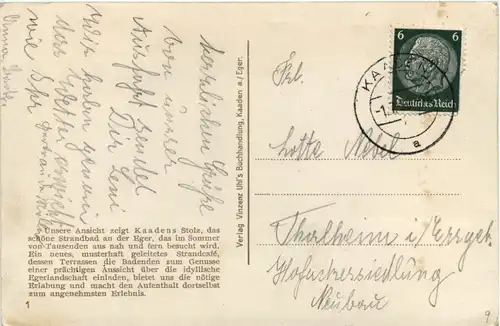 Herzlichen Grüße
von unserer
Ausflug sendet
Dir Leni
Wir haben genau
das Wetter erwischt
wie Ihr
Unsere Ansicht zeigt Kaadens Stolz, das
schöne Strandbad an der Eger, das im Sommer
von Tausenden aus nah und fern besucht wird.
Ein neues, musterhaft geleitetes Strandcafé,
dessen Terrassen die Badenden zum Genusse
einer prächtigen Aussicht über die idyllische
Egerlandschaft einladen, bietet uns die nötige
Erlabung und macht den Aufenthalt dortselbst
zum angenehmsten Erlebnis.
1
Verlag Vinzenz Uhl's Buchhandlung, Kaaden a./Eger.
6 6
Deutsches Reich
KAADEN
a
Frl.
Lotte Nebel
Thalheim i/Erzgeb
Hofnutzersiedlung
Neubau
9